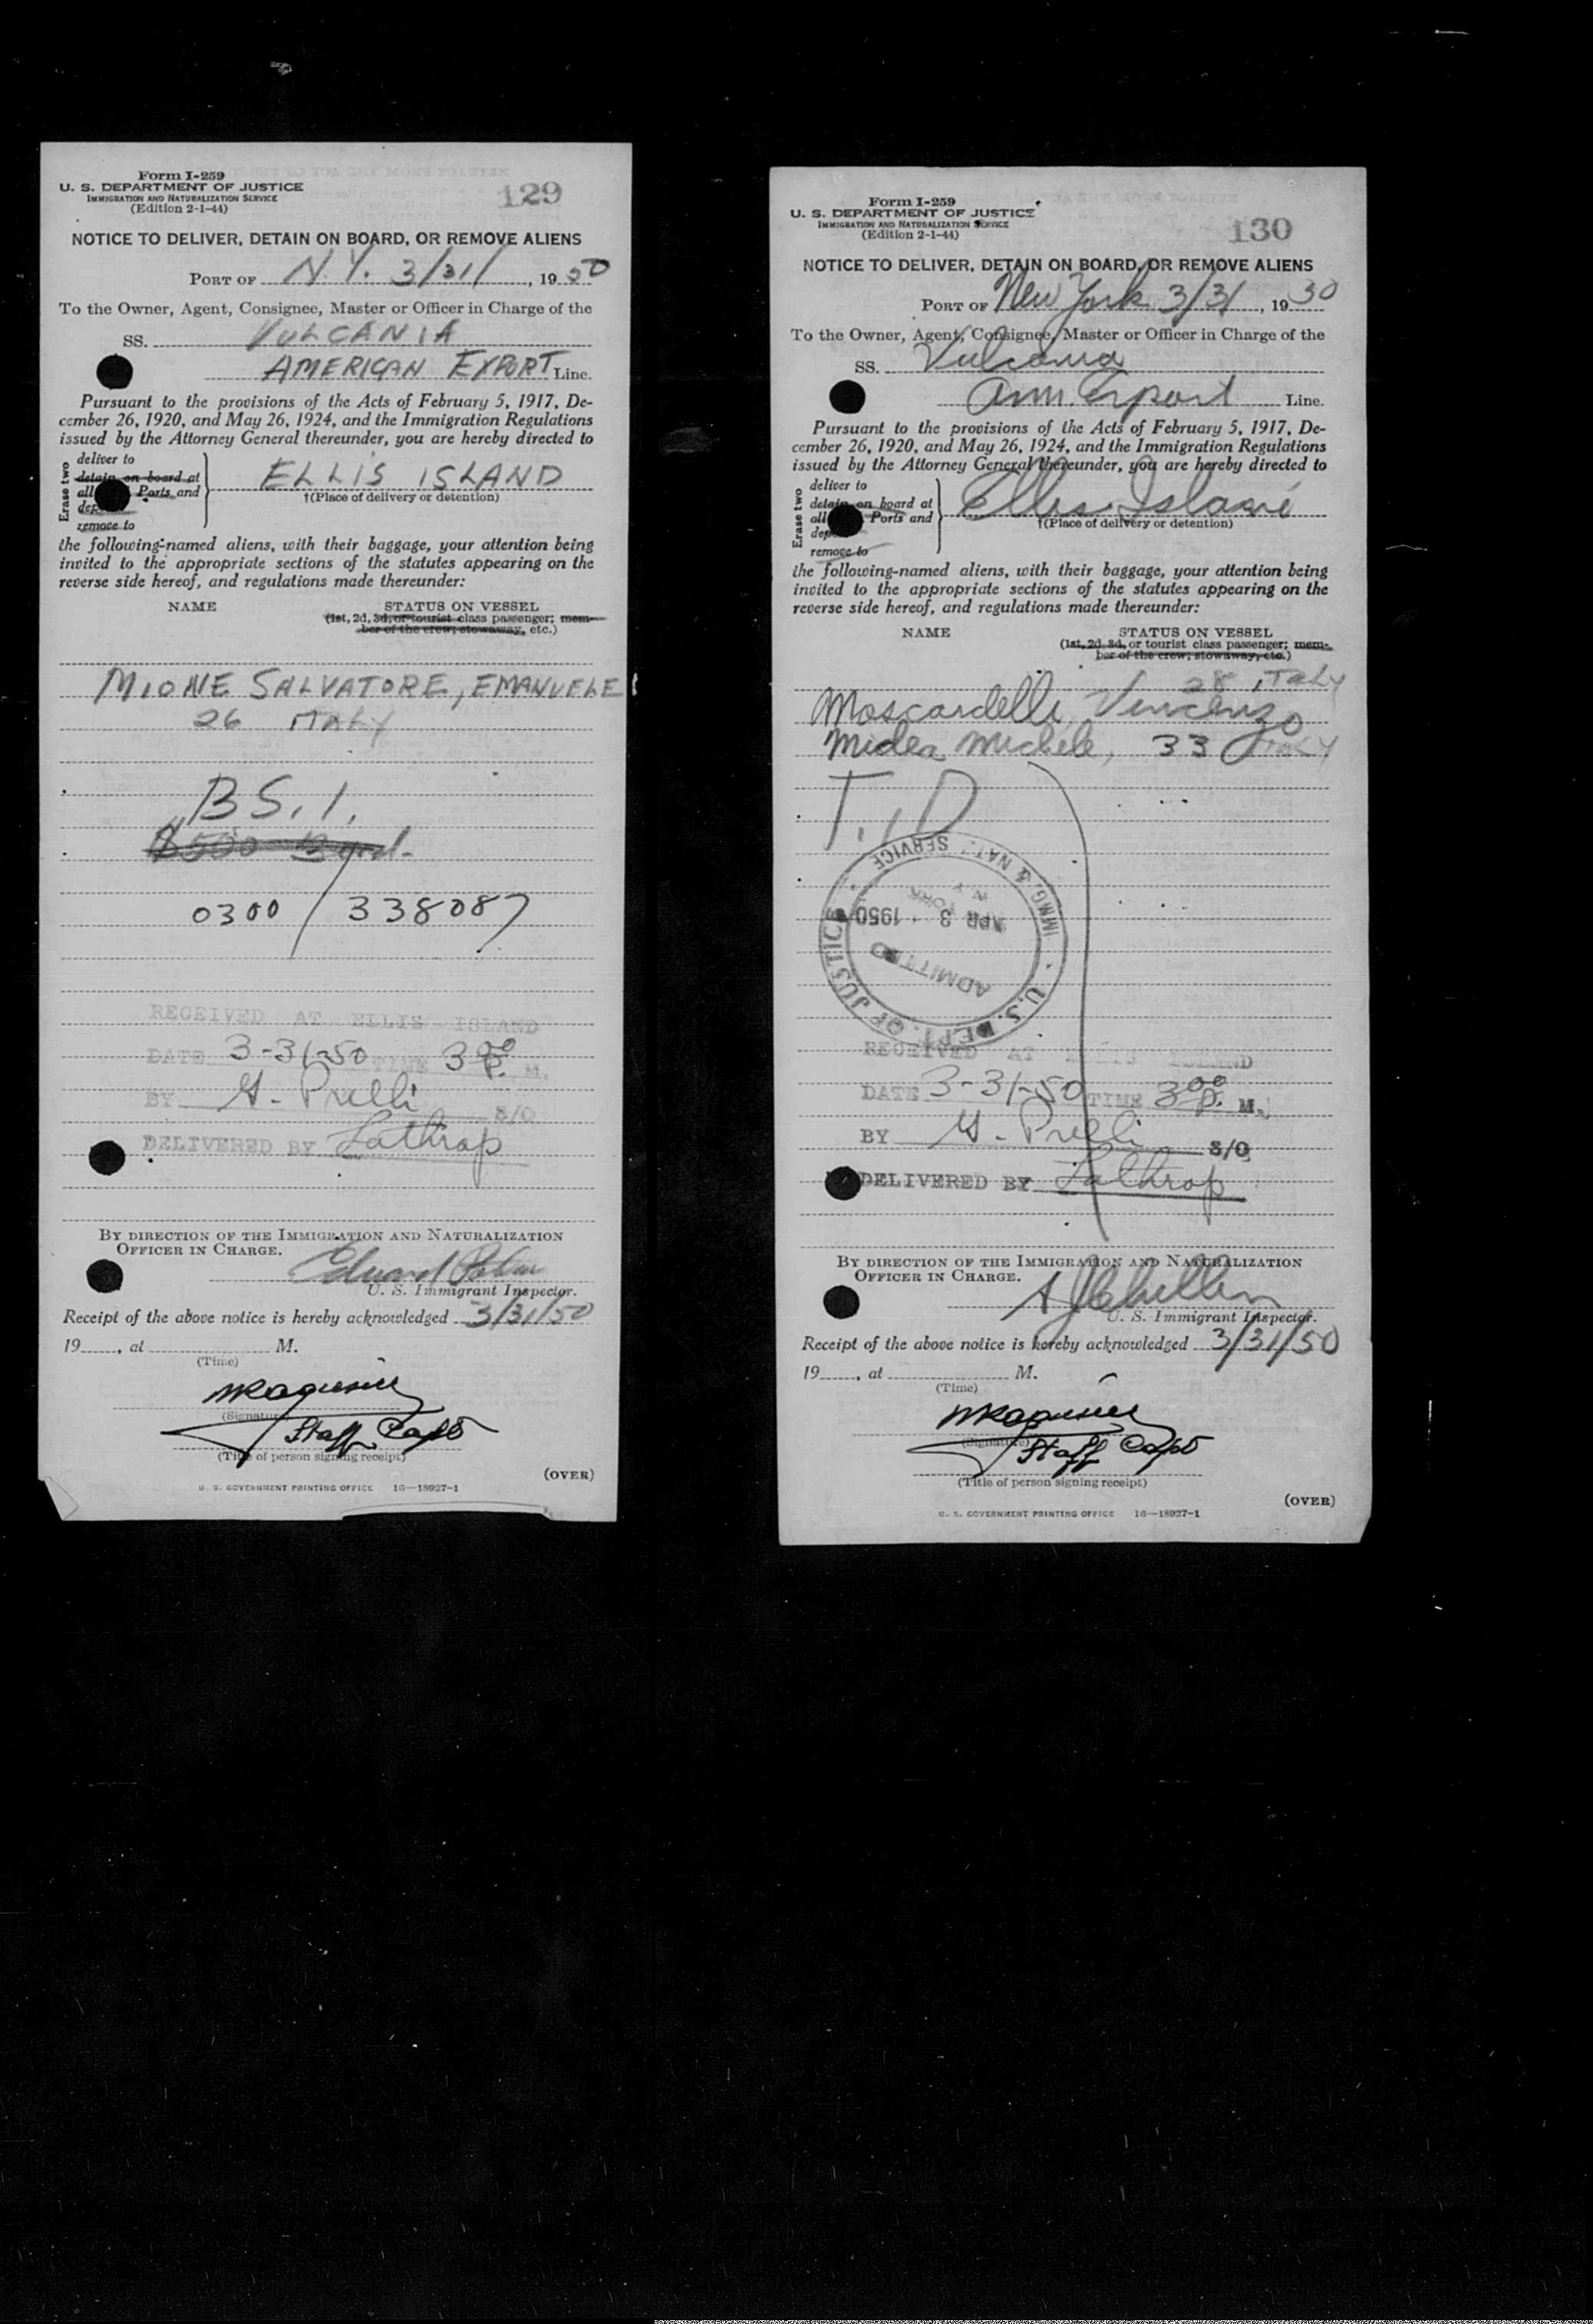 Form I-259
U. S. DEPARTMENT OF JUSTICE
IMMIGRATION AND NATURALIZATION SERVICE
(Edition 2-1-44)
129
NOTICE TO DELIVER, DETAIN ON BOARD, OR REMOVE ALIENS
PORT OF N.Y. 3/31/, 1950
To the Owner, Agent, Consignee, Master or Officer in Charge of the
SS. VULCANIA
AMERICAN EXPORT Line.
Pursuant to the provisions of the Acts of February 5, 1917, De-
cember 26, 1920, and May 26, 1924, and the Immigration Regulations
issued by the Attorney General thereunder, you are hereby directed to
Erase two
deliver to
detain on board at
all Ports and
remove to
ELLIS ISLAND
†(Place of delivery or detention)
the following-named aliens, with their baggage, your attention being
invited to the appropriate sections of the statutes appearing on the
reverse side hereof, and regulations made thereunder:
NAME STATUS ON VESSEL
(1st, 2d, 3d, or tourist class passenger; mem-
ber of the crew; stowaway, etc.)
MIONE SALVATORE, EMANUELE
26 ITALY
B.S.I.
$500 Bond.
0300 / 338087
RECEIVED AT ELLIS ISLAND
DATE 3-31-50 TIME 3 00 P. M.
BY G. Prelli S/O
DELIVERED BY Lathrop
BY DIRECTION OF THE IMMIGRATION AND NATURALIZATION
OFFICER IN CHARGE.
Edward
U. S. Immigrant Inspector.
Receipt of the above notice is hereby acknowledged 3/31/50
19____, at ____ M.
(Time)
(Signature)
Staff Capt
(Title of person signing receipt)
(OVER)
U. S. GOVERNMENT PRINTING OFFICE 16—18927-1
Form I-259
U. S. DEPARTMENT OF JUSTICE
IMMIGRATION AND NATURALIZATION SERVICE
(Edition 2-1-44)
130
NOTICE TO DELIVER, DETAIN ON BOARD, OR REMOVE ALIENS
PORT OF New York 3/31, 1930
To the Owner, Agent, Consignee, Master or Officer in Charge of the
SS. Vulcania
Am. Export Line.
Pursuant to the provisions of the Acts of February 5, 1917, De-
cember 26, 1920, and May 26, 1924, and the Immigration Regulations
issued by the Attorney General thereunder, you are hereby directed to
Erase two
deliver to
detain on board at
all Ports and
remove to
Ellis Island
†(Place of delivery or detention)
the following-named aliens, with their baggage, your attention being
invited to the appropriate sections of the statutes appearing on the
reverse side hereof, and regulations made thereunder:
NAME STATUS ON VESSEL
(1st, 2d, 3d, or tourist class passenger; mem-
ber of the crew; stowaway, etc.)
28 ITALY
Moscardelli, Vincenzo
Midea Michele, 33 ITALY
T.D
U.S. DEPT. OF JUSTICE
IMMG. & NAT. SERVICE
ADMITTED
APR 3 1950
NEW YORK
N.Y.
RECEIVED AT ELLIS ISLAND
DATE 3-31-50 TIME 3 00 P. M.
BY G. Prelli S/O
DELIVERED BY Lathrop
BY DIRECTION OF THE IMMIGRATION AND NATURALIZATION
OFFICER IN CHARGE.
U. S. Immigrant Inspector.
Receipt of the above notice is hereby acknowledged 3/31/50
19____, at ____ M.
(Time)
(Signature)
Staff Capt
(Title of person signing receipt)
(OVER)
U. S. GOVERNMENT PRINTING OFFICE 16—18927-1